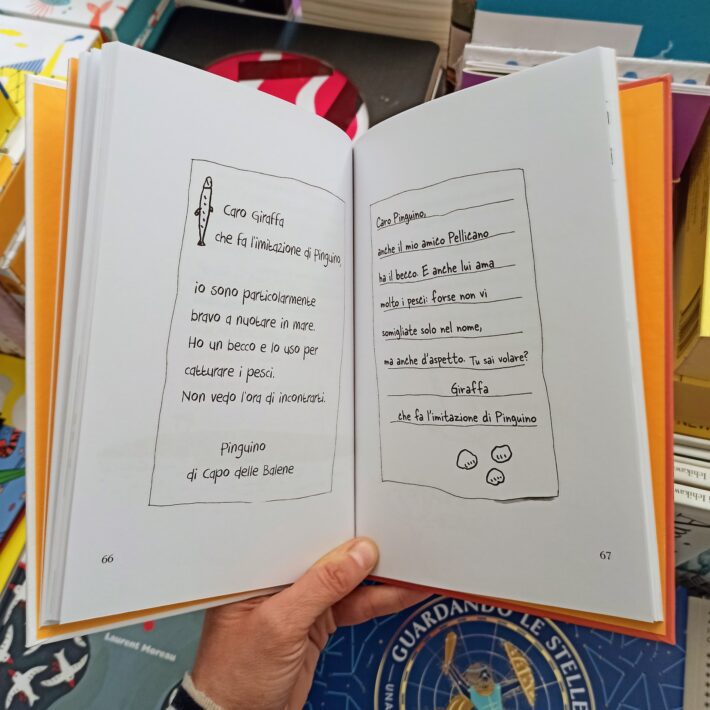 Caro Giraffa
che fa l'imitazione di Pinguino,
io sono particolarmente
bravo a nuotare in mare.
Ho un becco e lo uso per
catturare i pesci.
Non vedo l'ora di incontrarti.
Pinguino
di Capo delle Balene
66
Caro Pinguino,
anche il mio amico Pellicano
ha il becco. E anche lui ama
molto i pesci: forse non vi
somigliate solo nel nome,
ma anche d'aspetto. Tu sai volare?
Giraffa
che fa l'imitazione di Pinguino
67
Laurent Moreau
GUARDANDO LE STELLE